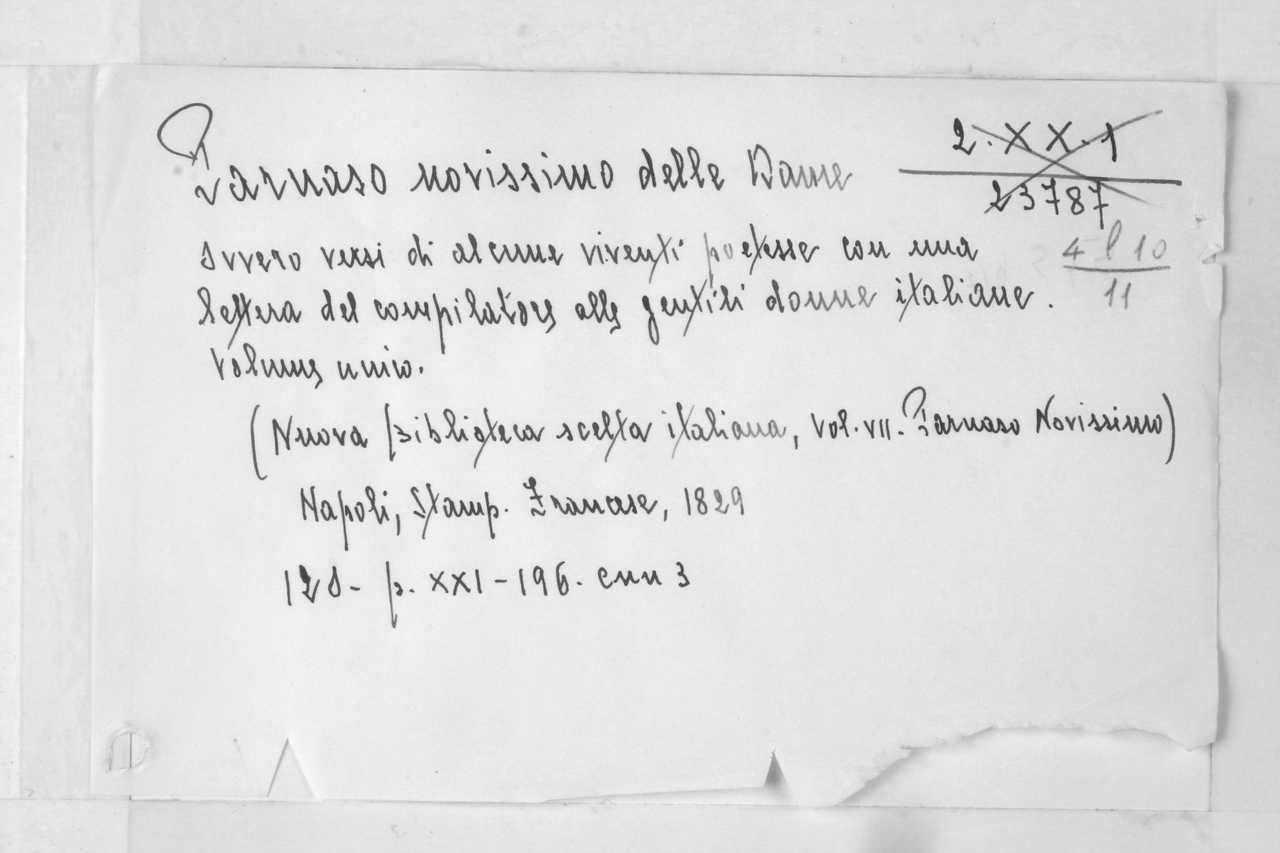 Parnaso novissimo delle Dame
2. XX. 1
23787
ovvero versi di alcune viventi poetesse con una
4 l 10
11
lettera del compilatore alle gentili donne italiane.
Volume unico.
(Nuova Biblioteca scelta italiana, vol. VII. Parnaso Novissimo)
Napoli, Stamp. Francese, 1829
12º - p. XXI - 196. cnn 3